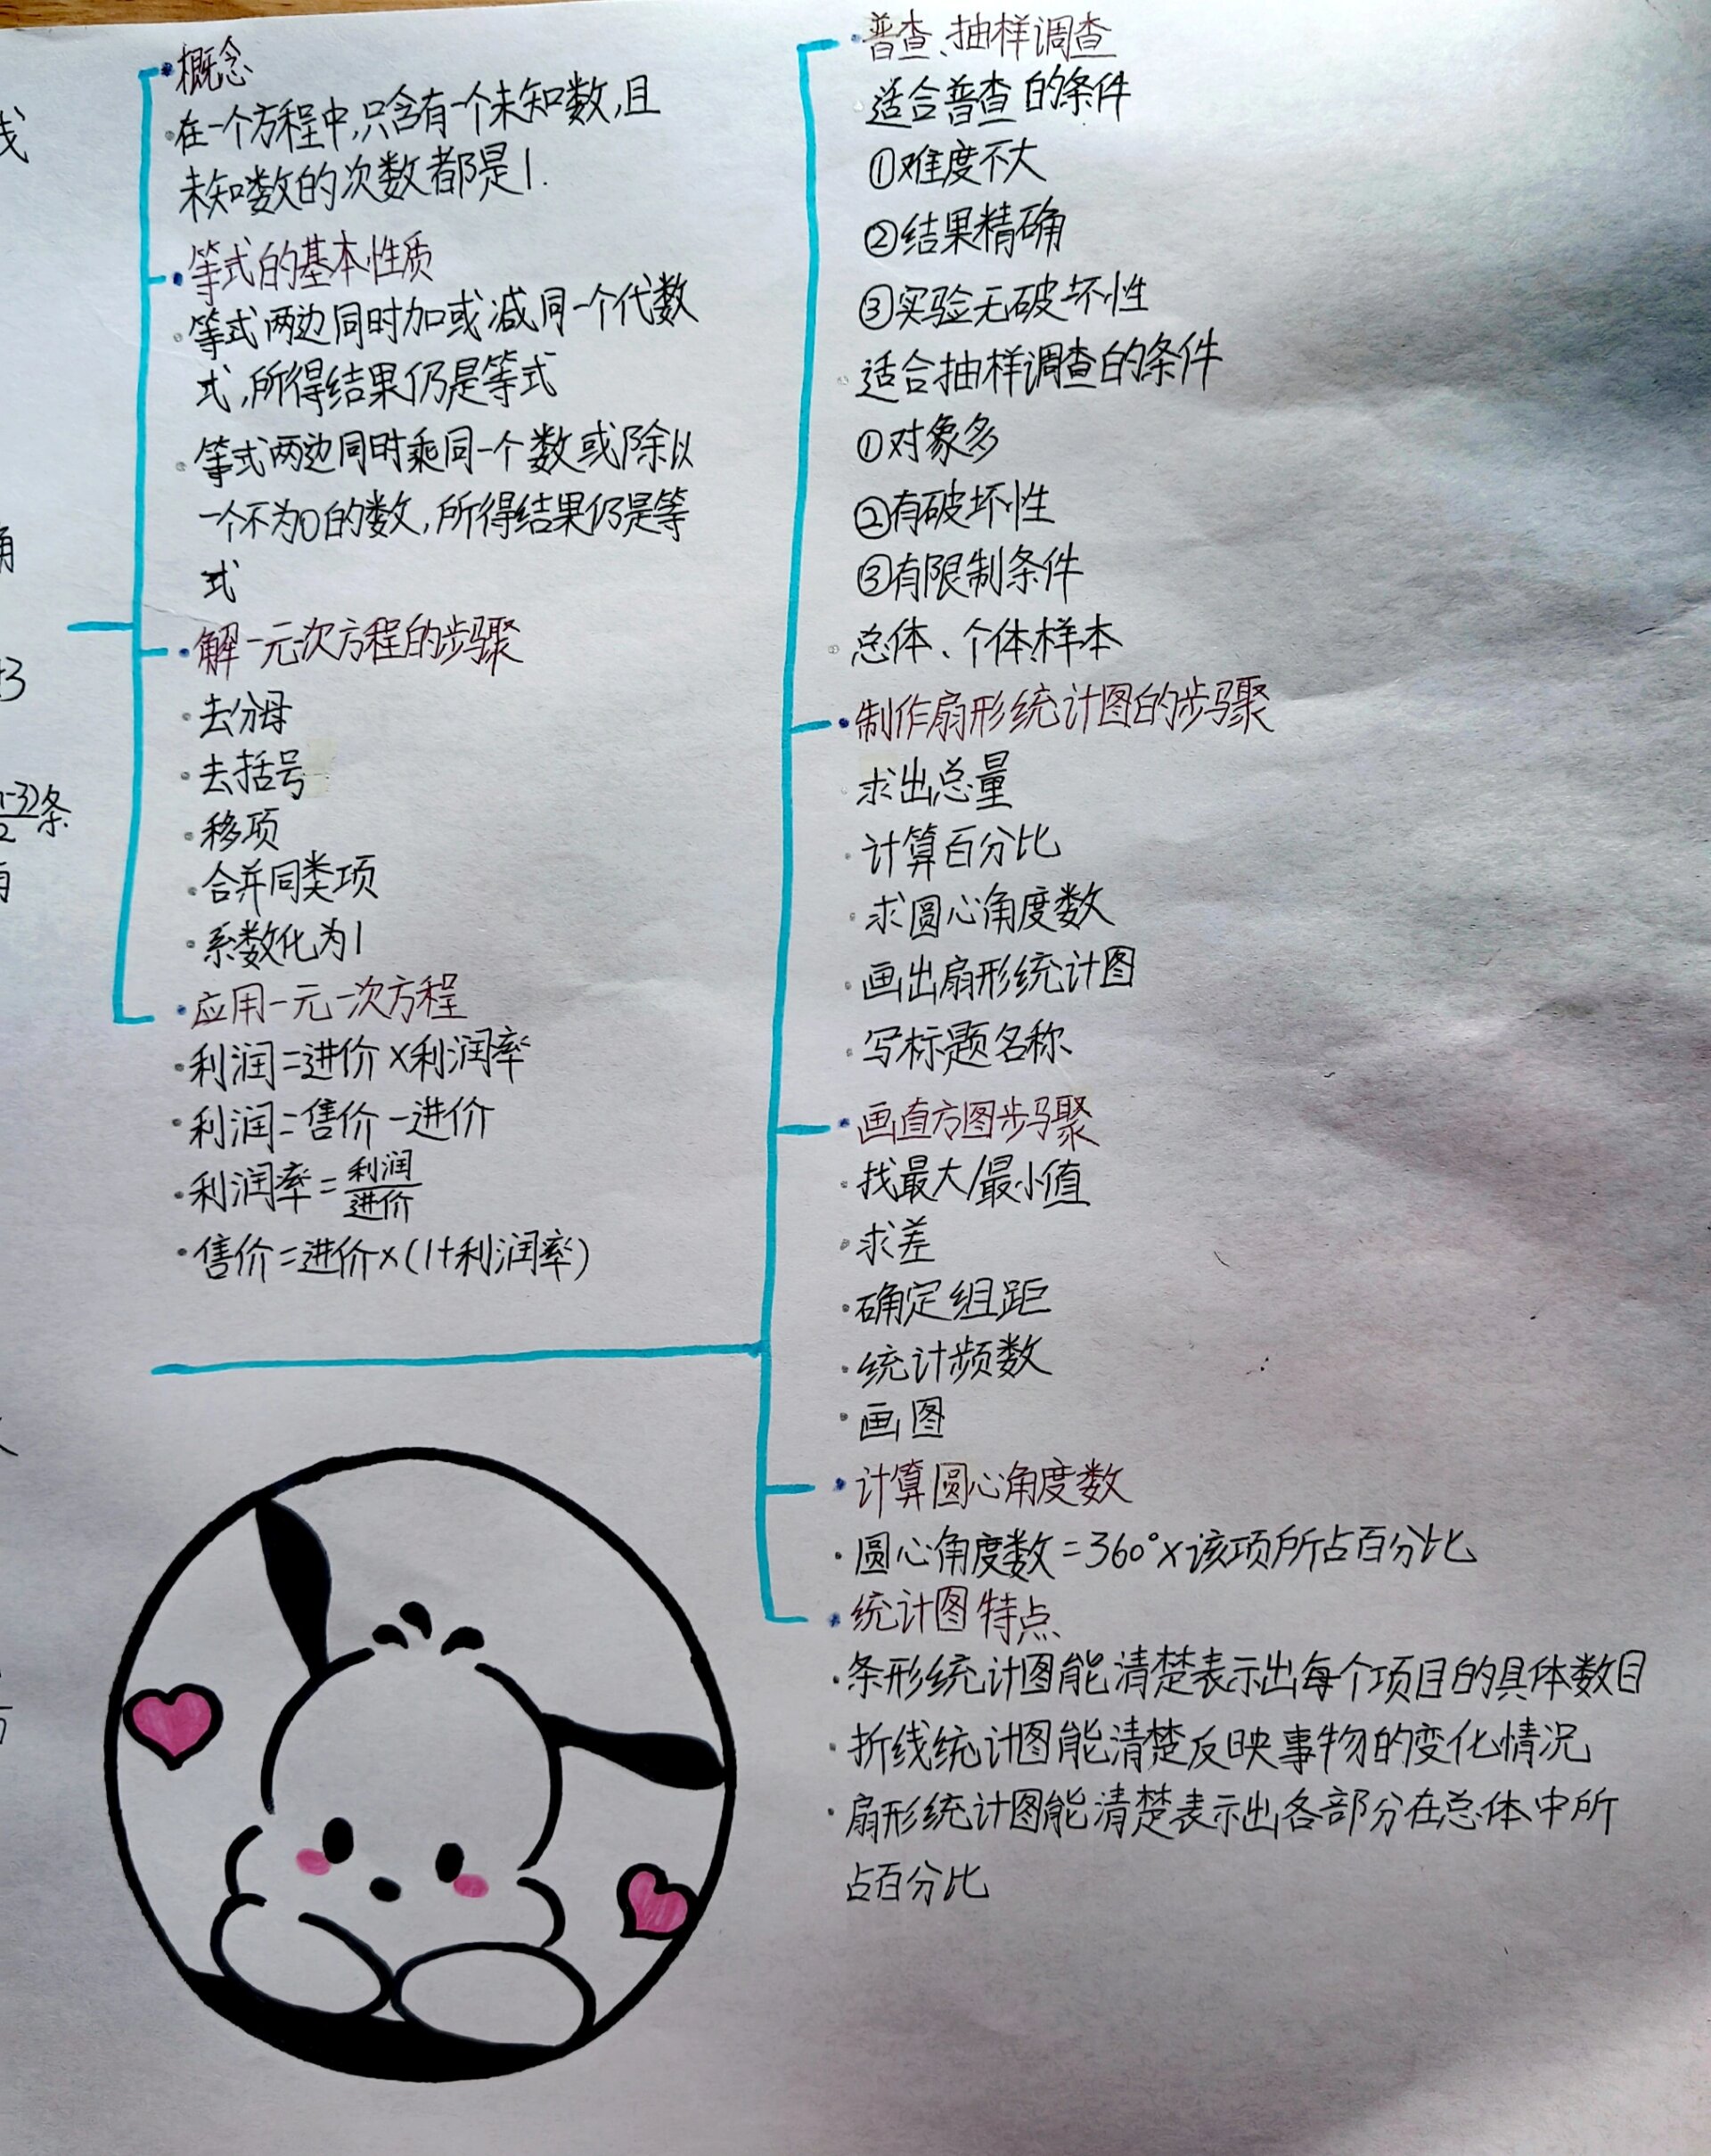 概念
在一个方程中,只含有一个未知数,且
未知数的次数都是1.
等式的基本性质
等式两边同时加或减同一个代数
式,所得结果仍是等式
等式两边同时乘同一个数或除以
一个不为0的数,所得结果仍是等
式
解一元次方程的步骤
去分母
去括号
移项
合并同类项
系数化为1
应用一元一次方程
利润=进价×利润率
利润=售价-进价
利润率=利润/进价
售价=进价×(1+利润率)
普查、抽样调查
适合普查的条件
①难度不大
②结果精确
③实验无破坏性
适合抽样调查的条件
①对象多
②有破坏性
③有限制条件
总体、个体、样本
制作扇形统计图的步骤
求出总量
计算百分比
求圆心角度数
画出扇形统计图
写标题名称
画直方图步骤
找最大/最小值
求差
确定组距
统计频数
画图
计算圆心角度数
圆心角度数=360°×该项所占百分比
统计图特点
条形统计图能清楚表示出每个项目的具体数目
折线统计图能清楚反映事物的变化情况
扇形统计图能清楚表示出各部分在总体中所
占百分比